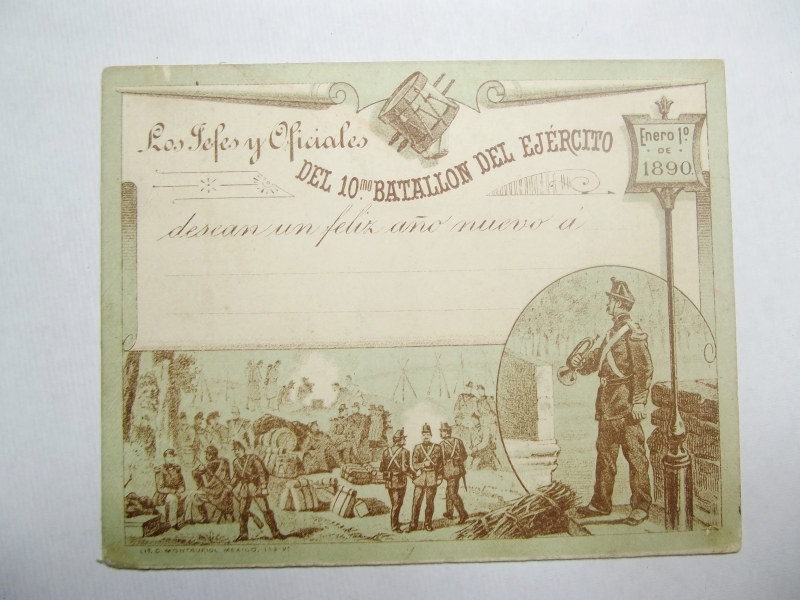 Los Jefes y Oficiales
DEL 10.mo BATALLON DEL EJÉRCITO
Enero 1º
DE
1890.
desean un feliz año nuevo á
LIT. C. MONTAURIOL MEXICO,